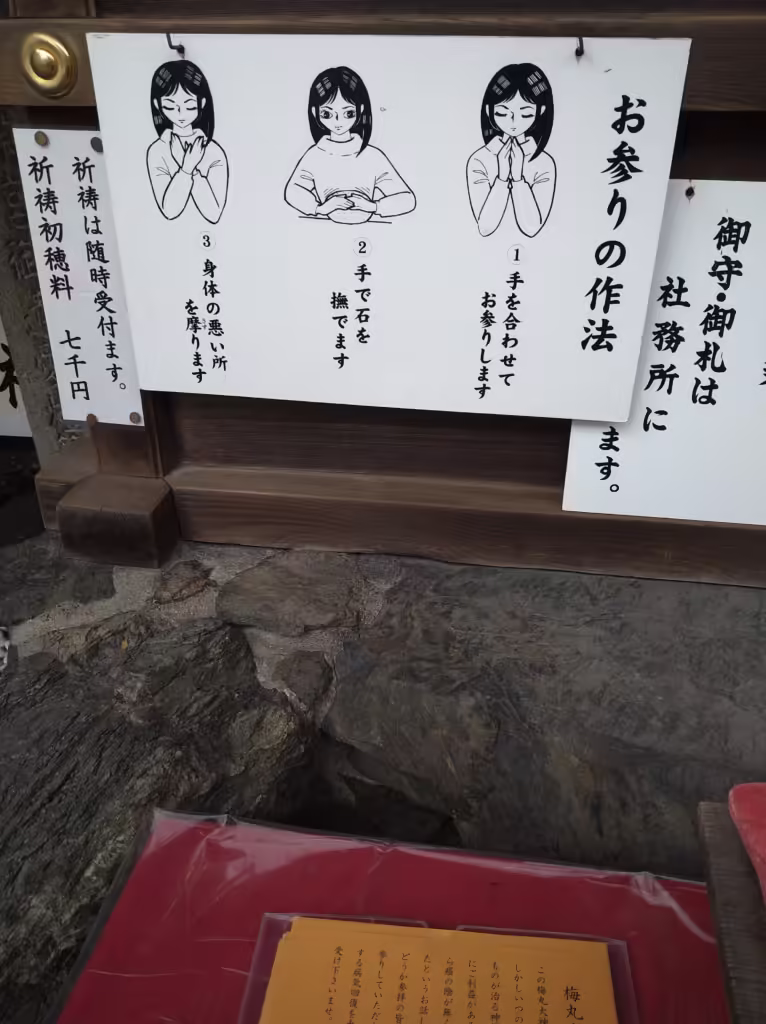 お参りの作法
1 手を合わせて
お参りします
2 手で石を
撫でます
3 身体の悪い所
を摩ります
祈祷は随時受付ます。
祈祷初穂料 七千円
御守・御札は
社務所に
ます。
梅丸
この梅丸大神
しかしいつの
ものが治る神
にご利益があ
ら癌の陰が無
たというお話し
どうか参拝の皆
参りしていただ
する病気回復を
受け下さいませ。